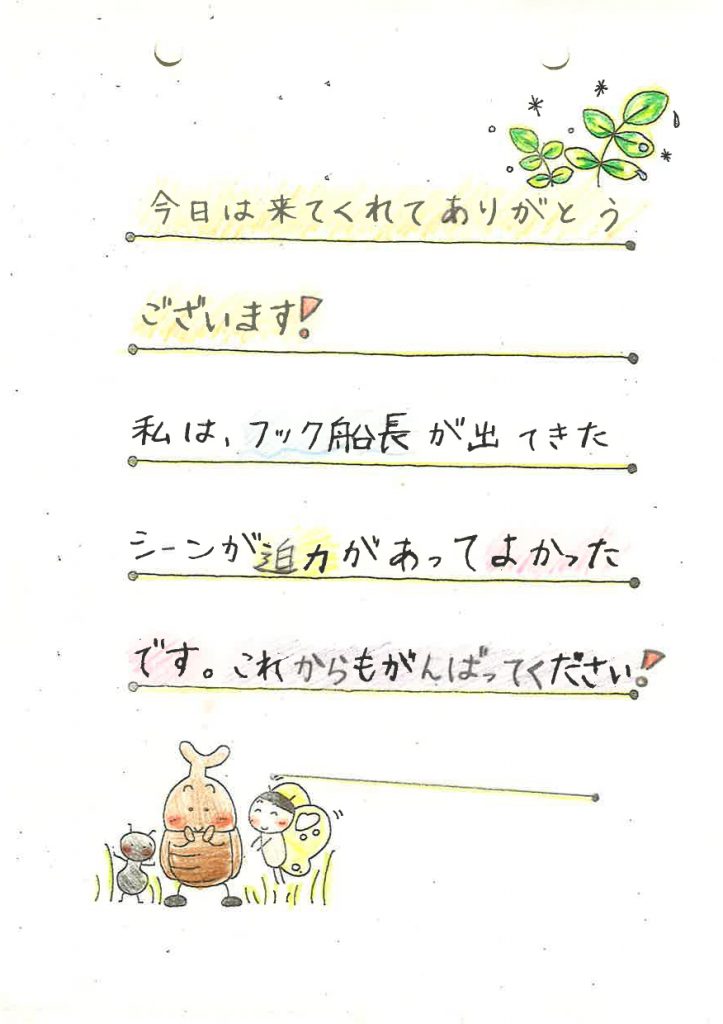 今日は来てくれてありがとう
ございます!
私は、フック船長が出てきた
シーンが迫力があってよかった
です。これからもがんばってください!